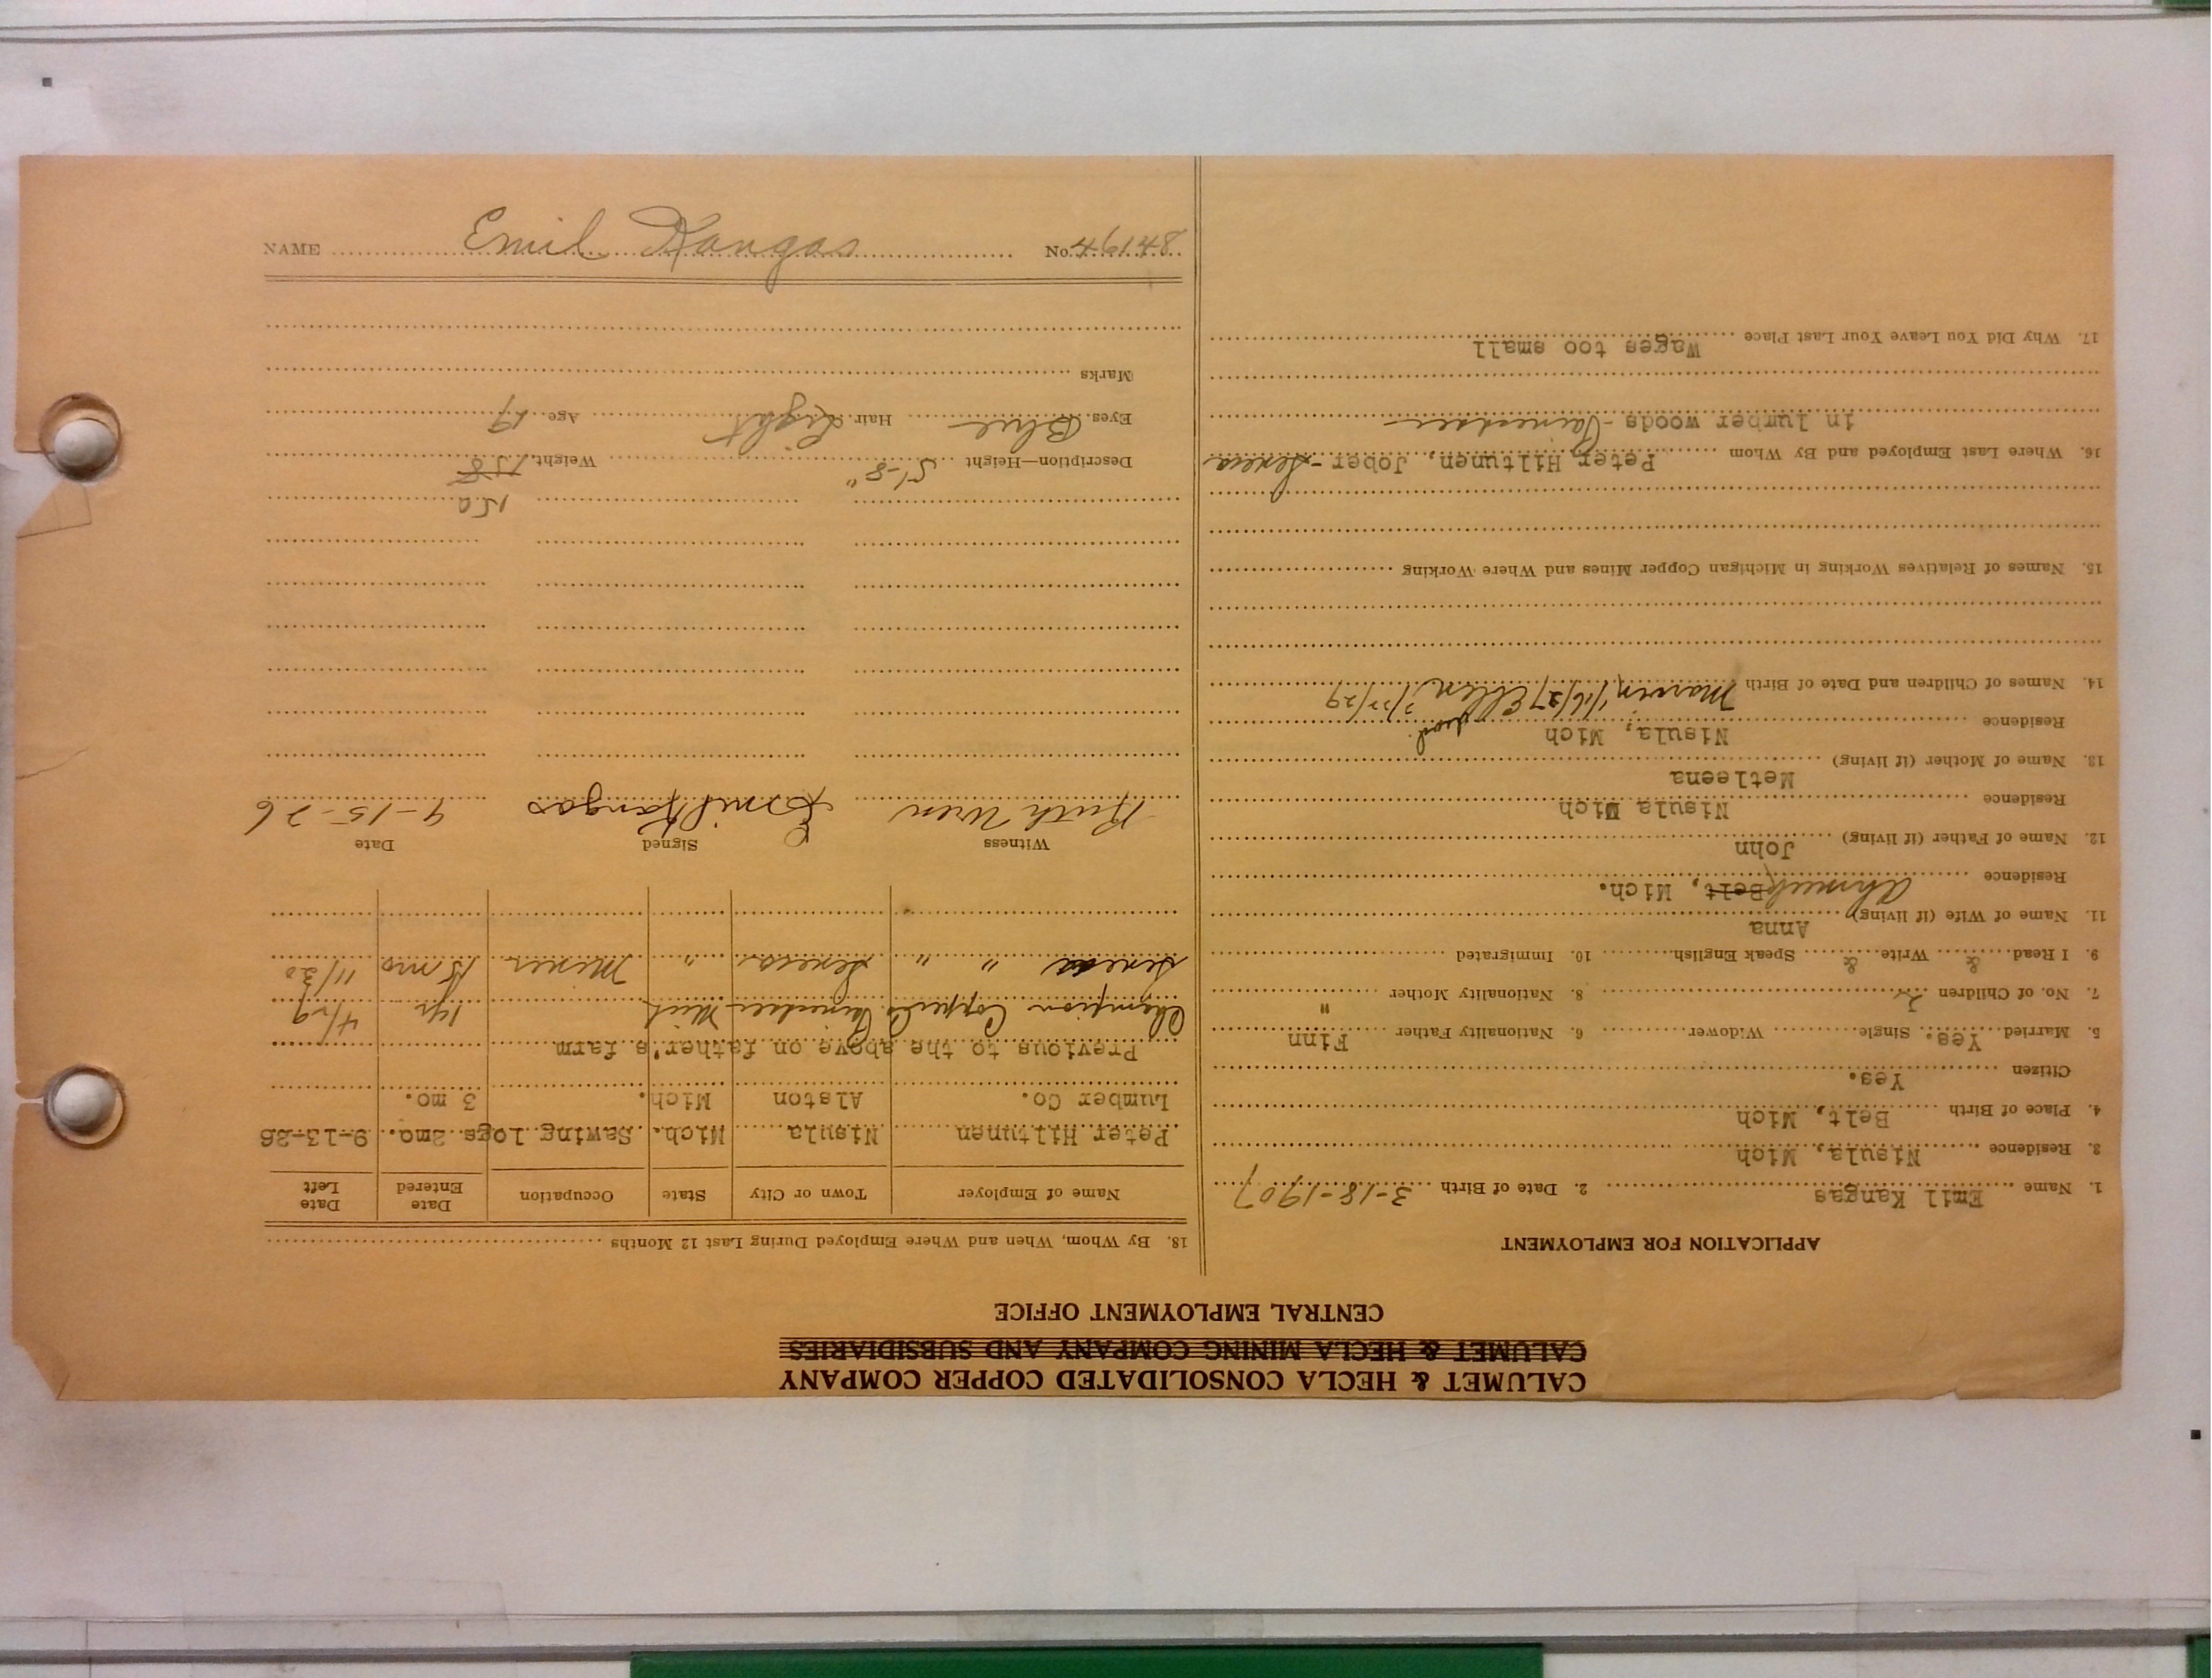 CALUMET & HECLA CONSOLIDATED COPPER COMPANY
CALUMET & HECLA MINING COMPANY AND SUBSIDIARIES
CENTRAL EMPLOYMENT OFFICE
APPLICATION FOR EMPLOYMENT
1. Name Emil Kangas 2. Date of Birth 3-18-1907
3. Residence Nisula, Mich
4. Place of Birth Belt, Mich
Citizen Yes.
5. Married Yes. Single Widower 6. Nationality Father Finn
7. No. of Children 2 8. Nationality Mother "
9. I Read & Write & Speak English 10. Immigrated
11. Name of Wife (if living) Anna
Residence Ahmeek Belt, Mich.
12. Name of Father (if living) John
Residence Nisula Mich
13. Name of Mother (if living) Metleena
Residence Nisula, Mich dead.
14. Names of Children and Date of Birth Marvin 1/16/27 Ellen 2/22/29
15. Names of Relatives Working in Michigan Copper Mines and Where Working
16. Where Last Employed and By Whom Peter Hiltunen, Jober - Seneca
in lumber woods - Painesdale
17. Why Did You Leave Your Last Place Wages too small
18. By Whom, When and Where Employed During Last 12 Months
Name of Employer Town or City State Occupation Date Entered Date Left
Peter Hiltunen Nisula Mich. Sawing logs 2mo. 9-13-26
Lumber Co. Alston Mich. 3 mo.
Previous to the above on father's farm
Champion Copper Co Painesdale Mich 1 yr 4/29
Seneca " " Seneca " Miner 15 mo 11/30
Witness Signed Date
Ruth Uren Emil Kangas 9-15-26
150
Description—Height 5'-8" Weight 158
Eyes Blue Hair Light Age 19
Marks
NAME Emil Kangas No.